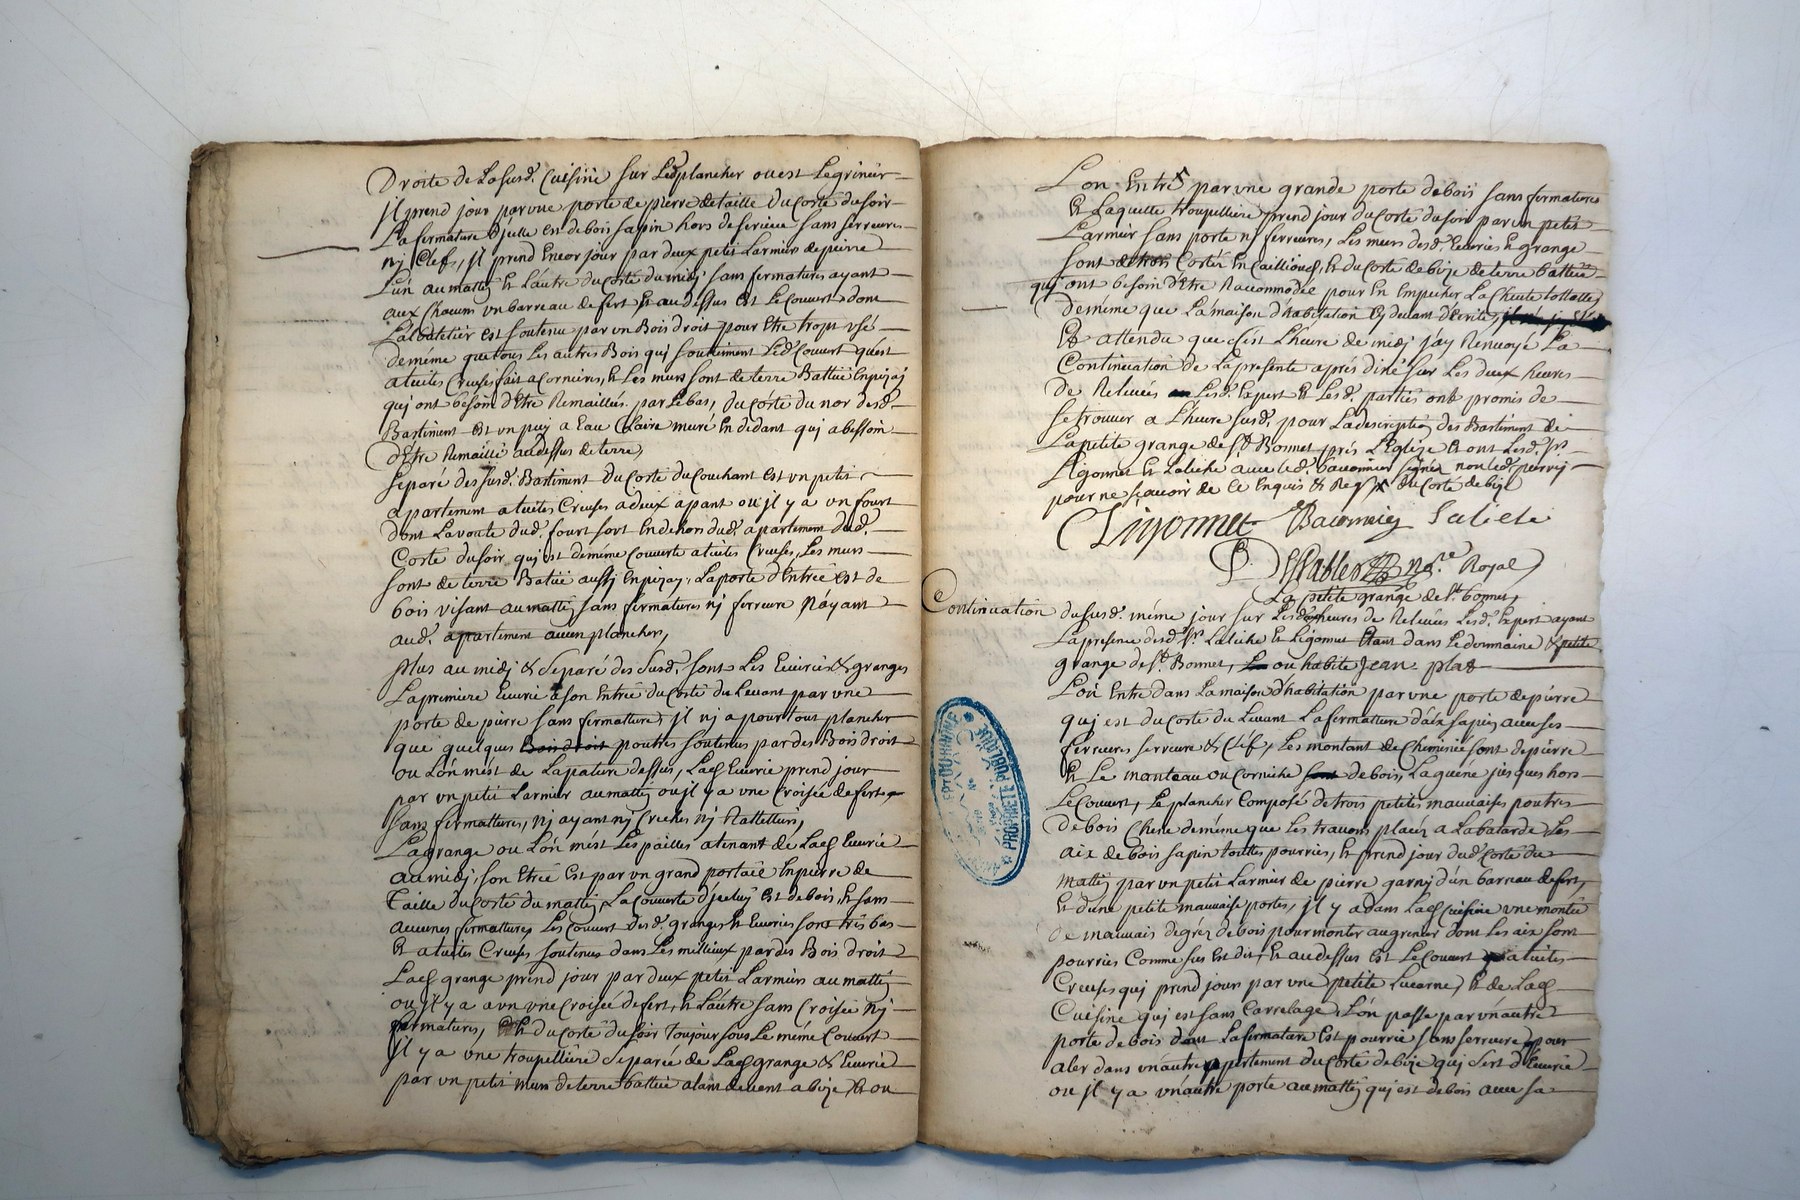 Droite de La susd. Cuisine sur Led plancher ou est Le grineir
jl prend jour par vne porte de pierre detaille du Costé du soir
La fermature d'jcelle est de bois sapin hors de serieure sans serreures
nj Clefs, jl prend Encor jour par deux petit Larmiers depierre
L'un au mattij et L'autre du Costé du midj sans fermatures ayant
aux Chacuns vn barreau de fert et au dessus est Le Couvert dont
est soutenue par vn Bois droit pour Etre trops vsé
deméme que tous Les autres Bois quj soutiennent Led Couvert qu'est
atuiles Creuses fait a Cornieres, et Les murs sont de terre Battüe Enpizaj
quj ont besoin d'Etre Remaillés par Le bas, du Costé du nor desd.
Bastiment est vn puij a Eau Claire muré En dedant quj abessoin
d'Etre Remaillé audessus de terre,
Separé des susd. Bastiment du Costé du Couchant est vn petit
apartement atuiles Creuses a deux apant ou jl y a vn fourt
dont La voute dud. fourt sort Endehors dud. apartement dud.
Costé du soir, quj est deméme Couverte atuiles Creuses, Les murs
sont de terre Batüe aussj Enpizaj, La porte d'Entreé est de
bois visant au mattij sans fermatures nj ferreure N'ayant
aud. apartement aucun plancher,
plus au midj & Separé des Susd. sont Les Ecuries & granges
La premiere Ecurie a son Entreé du Costé du Levant par vne
porte de pierre sans fermatture, jl nj a pour tout plancher
que quelques Bois droit poutres soutenus par des Bois droit
ou L'on met de La pature dessus, Lad Ecurie prend jour
par vn petit Larmier au mattij ou jl y a vne Croiseé de fert
sans fermattures, nj ayant nj Creches nj Rattelliers,
La grange ou L'on met Les pailles atenant de Lad Ecurie
au midj, son Etreé est par vn grand portail En pierre de
Taille du Costé du mattij, La Couverte d'jceluy est de bois, et sans
aucunes fermattures Les Couvert desd. granges et Ecuries sont très bas
et atuiles Creuses soutenus dans Les millieux par des Bois droit
Lad grange prend jour par deux petit Larmiers au mattij
ou jl y a avn vne Croiseé de fert, et L'autre sans Croiseé nj
fermatures, et du Costé du soir Toujour sous Le méme Couvert
jl y a vne troupelliere Separeé de Lad grange & Ecurie
par vn petit mur de terre battüe alant de vent a bize et ou
L'on Entre par vne grande porte de bois sans fermatures
et Laquelle troupelliere prend jour du Costé du soir par vn petit
Larmier sans porte nj ferreures, Les murs desd. Ecuries et grange
sont Costés En Cailloud, et du Costé de bize de terre battüe
quj ont besoin d'Etre Racommodée pour En Empecher La Cheute tottalle
deméme que La maison d'habitation Cy devant d'Ecrite,
Et attendu que C'est L'heure de midj j'ay Renvoyé La
Continuation de La presente aprés diné sur Les deux heures
de Releveés Lesd. Expert et Lesd. parties ont promis de
se trouver a L'heure susd. pour La description des Bastiment de
La petite grange de St. Bonnet prés L'Eglize et ont Lesd. Srs.
Ligonnet et Laliche avec led. Baconnier signéz non led. pierrij
pour ne sçavoir de Ce Enquis & Reqs du Costé de bize
Ligonnet Baconnier Laliche
Royal
La petite grange de St. bonnet,
Continuation du susd. méme jour sur Lesd. heures de Releveés Lesd. Expert ayant
La presence desd. Srs. Laliche et Ligonnet Etant dans Le domaine & petite
grange de St. Bonnet, ou habite Jean plat
L'on Entre dans La maison d'habitation par vne porte de pierre
quj est du Costé du Levant La fermature d'aix sapin avec ses
ferreures serreure & Clef, Les montant de Cheminée sont de pierre
et Le manteau ou Corniche sont de bois, La guéne jusques hors
Le Couvert, Le plancher Composé de trois petites mauvaises poutres
de bois Chene deméme que Les travons placés a La batarde, Les
aix de bois sapin touttes pourries, et prend jour dud. Costé du
mattij par vn petit Larmier de pierre garnj d'un barreau de fert,
et d'une petite mauvaise portes, jl y a dans Lad Cuisine vne monteé
de mauvais degrés de bois pour monter au grenier dont Les aix sont
pourries Comme sus est dit, et au dessus est Le Couvert atuiles
Creuses quj prend jour par vne petite Lucarne, et de Lad
Cuisine quj est sans Carrelage L'on passe par vn autre
porte de bois dont La fermature est pourrie sans serreure pour
aler dans vn autre apertement du Costé de bize quj sert d'Ecurie
ou jl y a vn autre porte au mattij quj est de bois avec sa
PROPRIETE PUBLIQUE